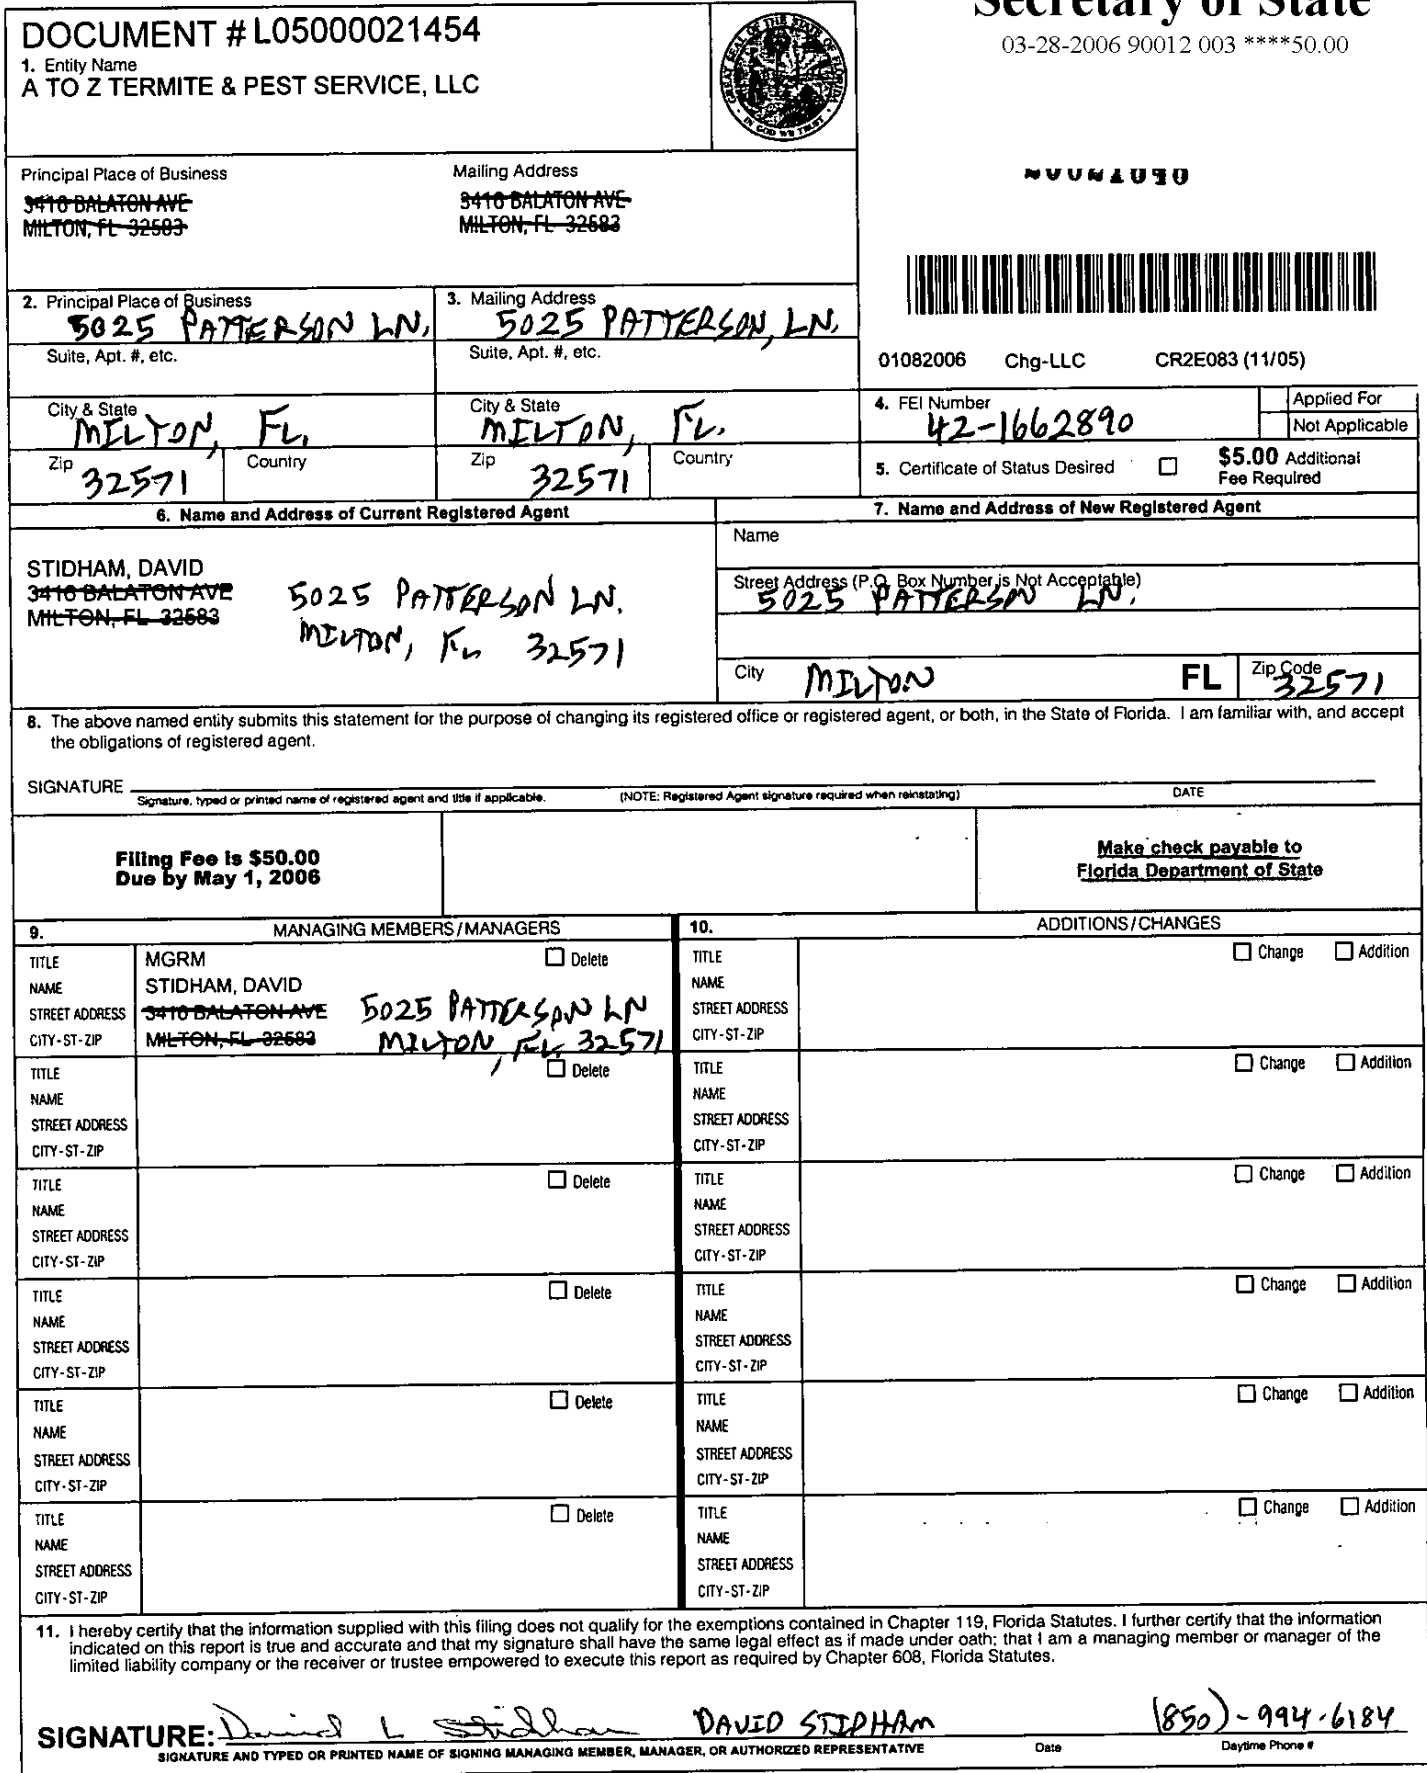 Secretary of State
03-28-2006 90012 003 ****50.00
DOCUMENT # L05000021454
1. Entity Name
A TO Z TERMITE & PEST SERVICE, LLC
GREAT SEAL OF THE STATE OF FLORIDA
IN GOD WE TRUST
Principal Place of Business
3410 BALATON AVE
MILTON, FL 32583
Mailing Address
3410 BALATON AVE
MILTON, FL 32583
2. Principal Place of Business
5025 PATTERSON LN.
3. Mailing Address
5025 PATTERSON, LN.
Suite, Apt. #, etc.
Suite, Apt. #, etc.
01082006 Chg-LLC CR2E083 (11/05)
City & State
MILTON, FL.
City & State
MILTON, FL.
4. FEI Number
42-1662890
Applied For
Not Applicable
Zip
32571
Country
Zip
32571
Country
5. Certificate of Status Desired
$5.00 Additional
Fee Required
6. Name and Address of Current Registered Agent
7. Name and Address of New Registered Agent
STIDHAM, DAVID
3410 BALATON AVE
MILTON, FL 32583
5025 PATTERSON LN.
MILTON, FL 32571
Name
Street Address (P.O. Box Number is Not Acceptable)
5025 PATTERSON LN.
City MILTON FL Zip Code 32571
8. The above named entity submits this statement for the purpose of changing its registered office or registered agent, or both, in the State of Florida. I am familiar with, and accept
the obligations of registered agent.
SIGNATURE
Signature, typed or printed name of registered agent and title if applicable. (NOTE: Registered Agent signature required when reinstating) DATE
Filing Fee is $50.00
Due by May 1, 2006
Make check payable to
Florida Department of State
9. MANAGING MEMBERS/MANAGERS
TITLE MGRM Delete
NAME STIDHAM, DAVID
STREET ADDRESS 3410 BALATON AVE 5025 PATTERSON LN
CITY-ST-ZIP MILTON, FL 32583 MILTON, FL 32571
TITLE Delete
NAME
STREET ADDRESS
CITY-ST-ZIP
TITLE Delete
NAME
STREET ADDRESS
CITY-ST-ZIP
TITLE Delete
NAME
STREET ADDRESS
CITY-ST-ZIP
TITLE Delete
NAME
STREET ADDRESS
CITY-ST-ZIP
TITLE Delete
NAME
STREET ADDRESS
CITY-ST-ZIP
10. ADDITIONS/CHANGES
TITLE Change Addition
NAME
STREET ADDRESS
CITY-ST-ZIP
TITLE Change Addition
NAME
STREET ADDRESS
CITY-ST-ZIP
TITLE Change Addition
NAME
STREET ADDRESS
CITY-ST-ZIP
TITLE Change Addition
NAME
STREET ADDRESS
CITY-ST-ZIP
TITLE Change Addition
NAME
STREET ADDRESS
CITY-ST-ZIP
TITLE Change Addition
NAME
STREET ADDRESS
CITY-ST-ZIP
11. I hereby certify that the information supplied with this filing does not qualify for the exemptions contained in Chapter 119, Florida Statutes. I further certify that the information
indicated on this report is true and accurate and that my signature shall have the same legal effect as if made under oath; that I am a managing member or manager of the
limited liability company or the receiver or trustee empowered to execute this report as required by Chapter 608, Florida Statutes.
SIGNATURE: David L Stidham DAVID STIDHAM (850)-994-6184
SIGNATURE AND TYPED OR PRINTED NAME OF SIGNING MANAGING MEMBER, MANAGER, OR AUTHORIZED REPRESENTATIVE Date Daytime Phone #